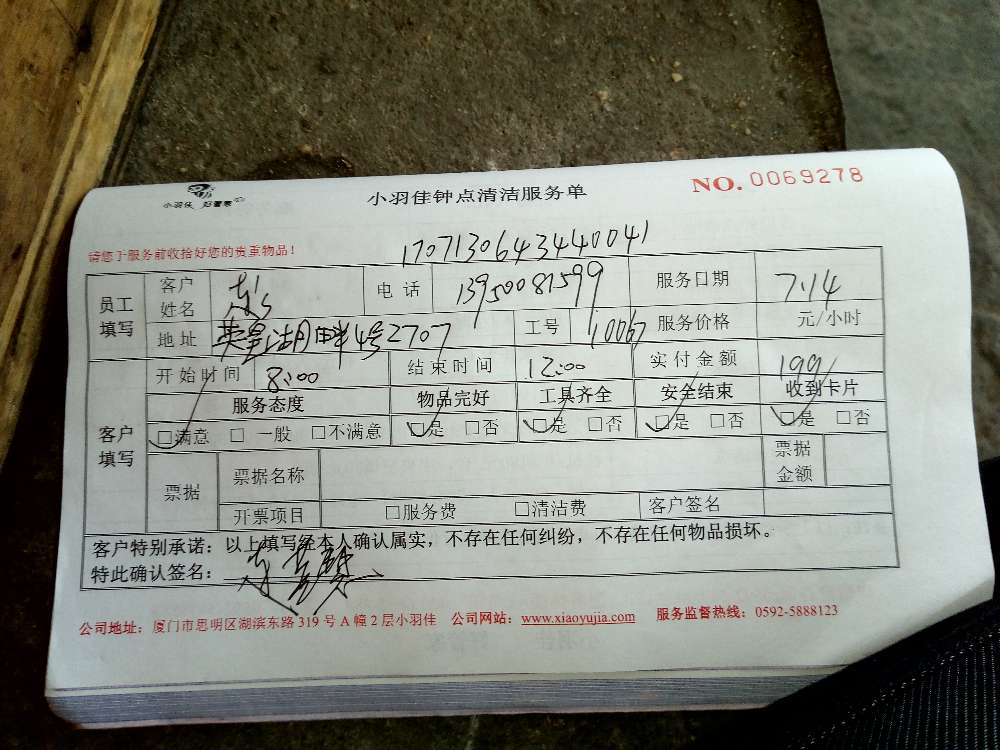 小羽佳 好管家
小羽佳钟点清洁服务单
NO. 0069278
请您于服务前收拾好您的贵重物品！
1707130643440041
员工填写 客户姓名 电话 13950081599 服务日期 7.14
地址 湖畔4号2707 工号 10067 服务价格 元/小时
客户填写 开始时间 8:00 结束时间 12:00 实付金额 199
服务态度 物品完好 工具齐全 安全结束 收到卡片
☑满意 □一般 □不满意 ☑是 □否 ☑是 □否 ☑是 □否 ☑是 □否
票据 票据名称 票据金额
开票项目 □服务费 □清洁费 客户签名
客户特别承诺：以上填写经本人确认属实，不存在任何纠纷，不存在任何物品损坏。
特此确认签名：
公司地址：厦门市思明区湖滨东路 319 号 A 幢 2 层小羽佳 公司网站：www.xiaoyujia.com 服务监督热线：0592-5888123